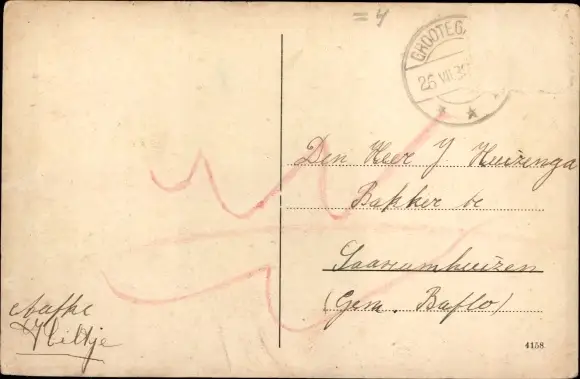 GROOTEGA
26 VII 3
Den Heer J Huizenga
Bakker te
Saaxumhuizen
(Gem. Baflo)
Aafke
Hiltje
4158